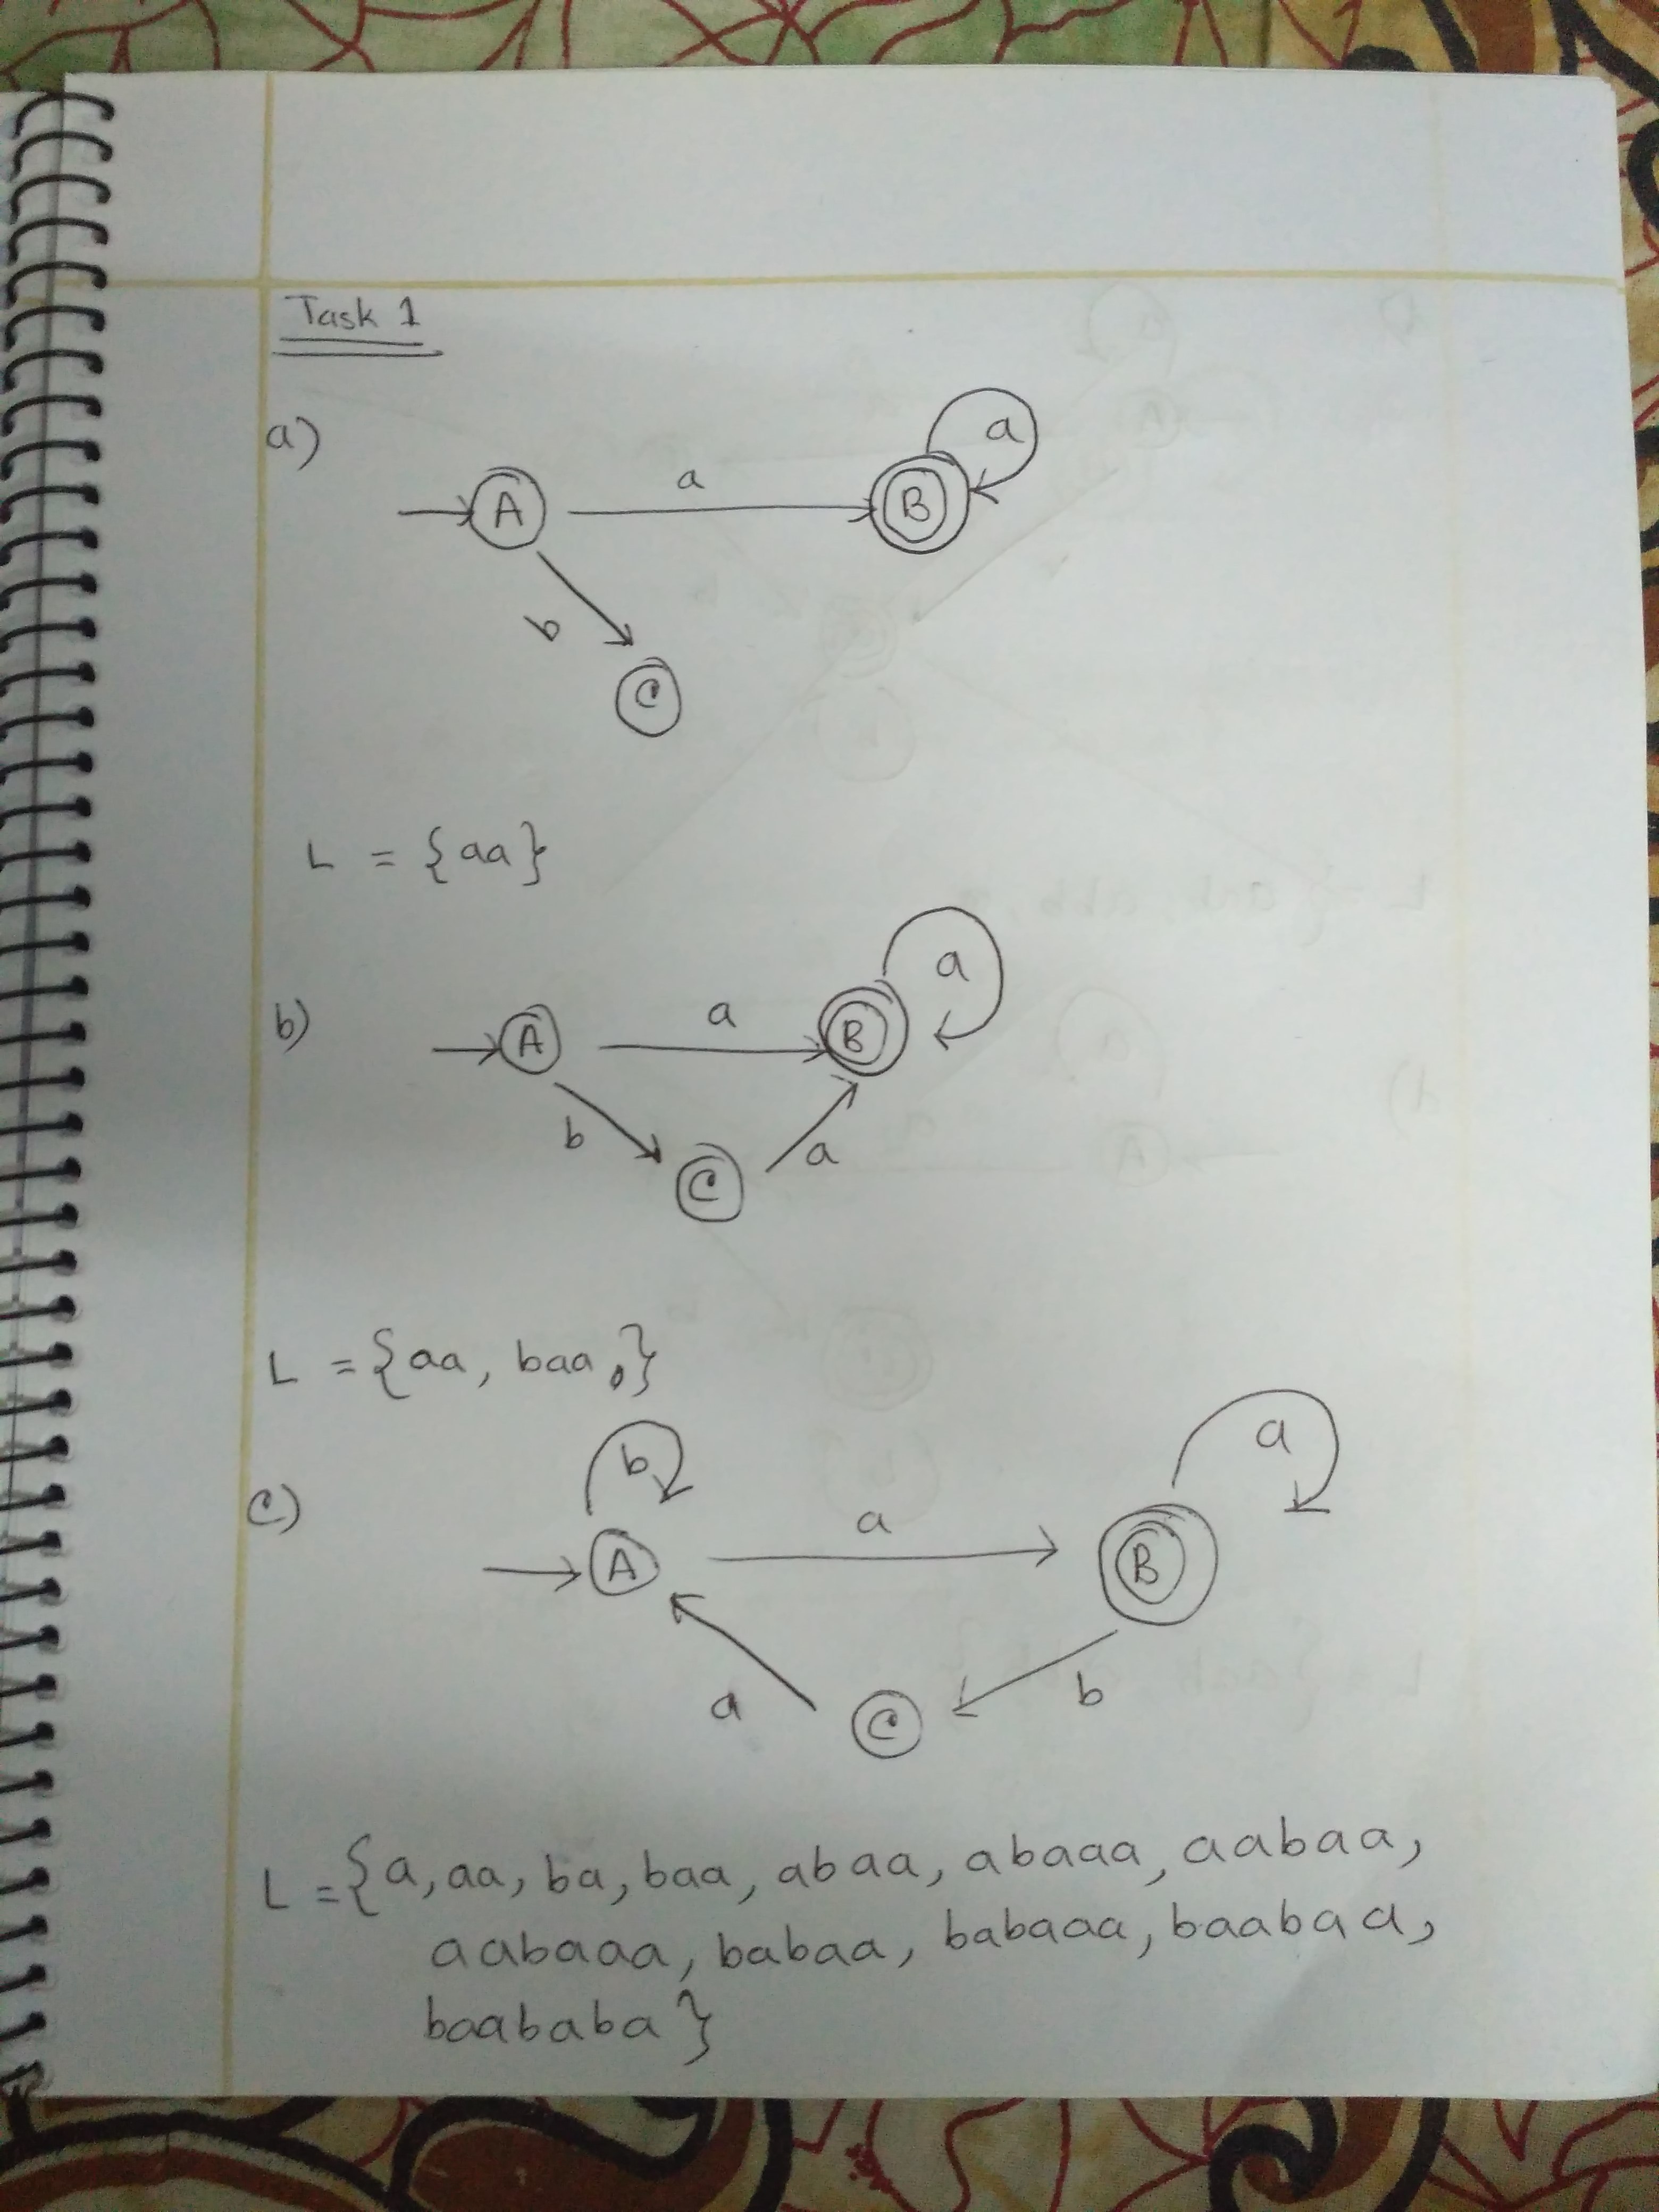 Task 1
a)
a
A a B
b
C
L = {aa}
b)
a
A a B
b a
C
L = {aa, baa,}
c)
b a
A a B
a b
C
L = {a, aa, ba, baa, abaa, abaaa, aabaa,
aabaaa, babaa, babaaa, baabaa,
baababa}